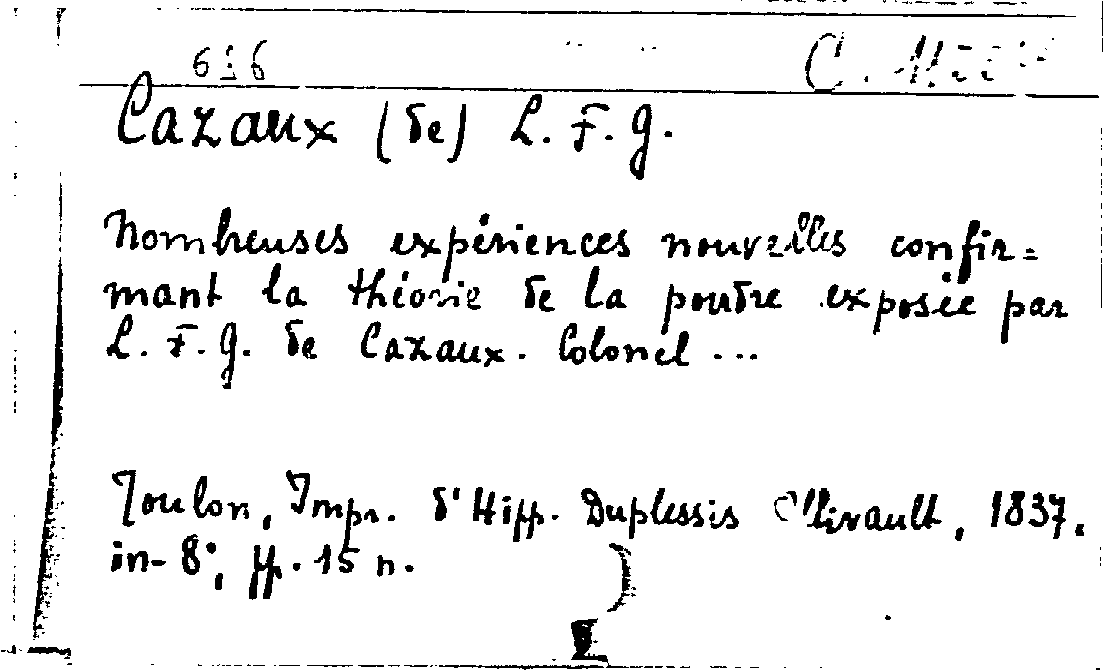 616
Cazaux (de) L. F. G.
Nombreuses expériences nouvelles confir=
mant la théorie de la poudre exposée par
L. F. G. de Cazaux. Colonel ...
Toulon, Impr. d'Hipp. Duplessis Ollivault, 1837.
in-8°, pp. 15 n.